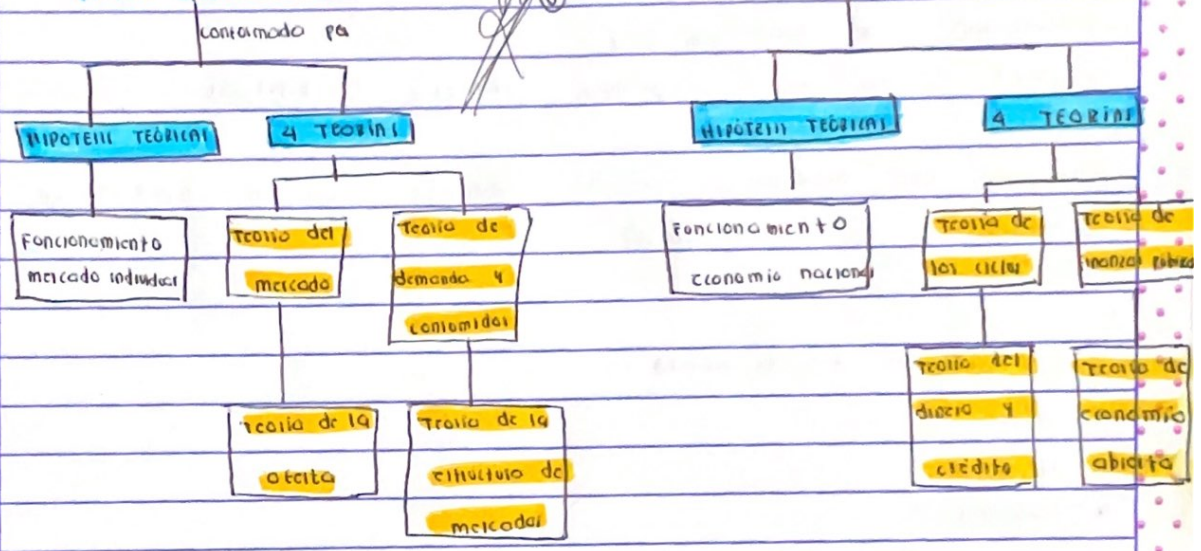 conformado por
HIPÓTESIS TEÓRICAS
4 TEORÍAS
Funcionamiento
mercado individual
Teoría del
mercado
Teoría de
demanda y
consumidor
Teoría de la
oferta
Teoría de la
estructura de
mercados
HIPÓTESIS TEÓRICAS
4 TEORÍAS
Funcionamiento
economía nacional
Teoría de
los ciclos
Teoría de
finanzas públicas
Teoría del
dinero y
crédito
Teoría de
economía
abierta